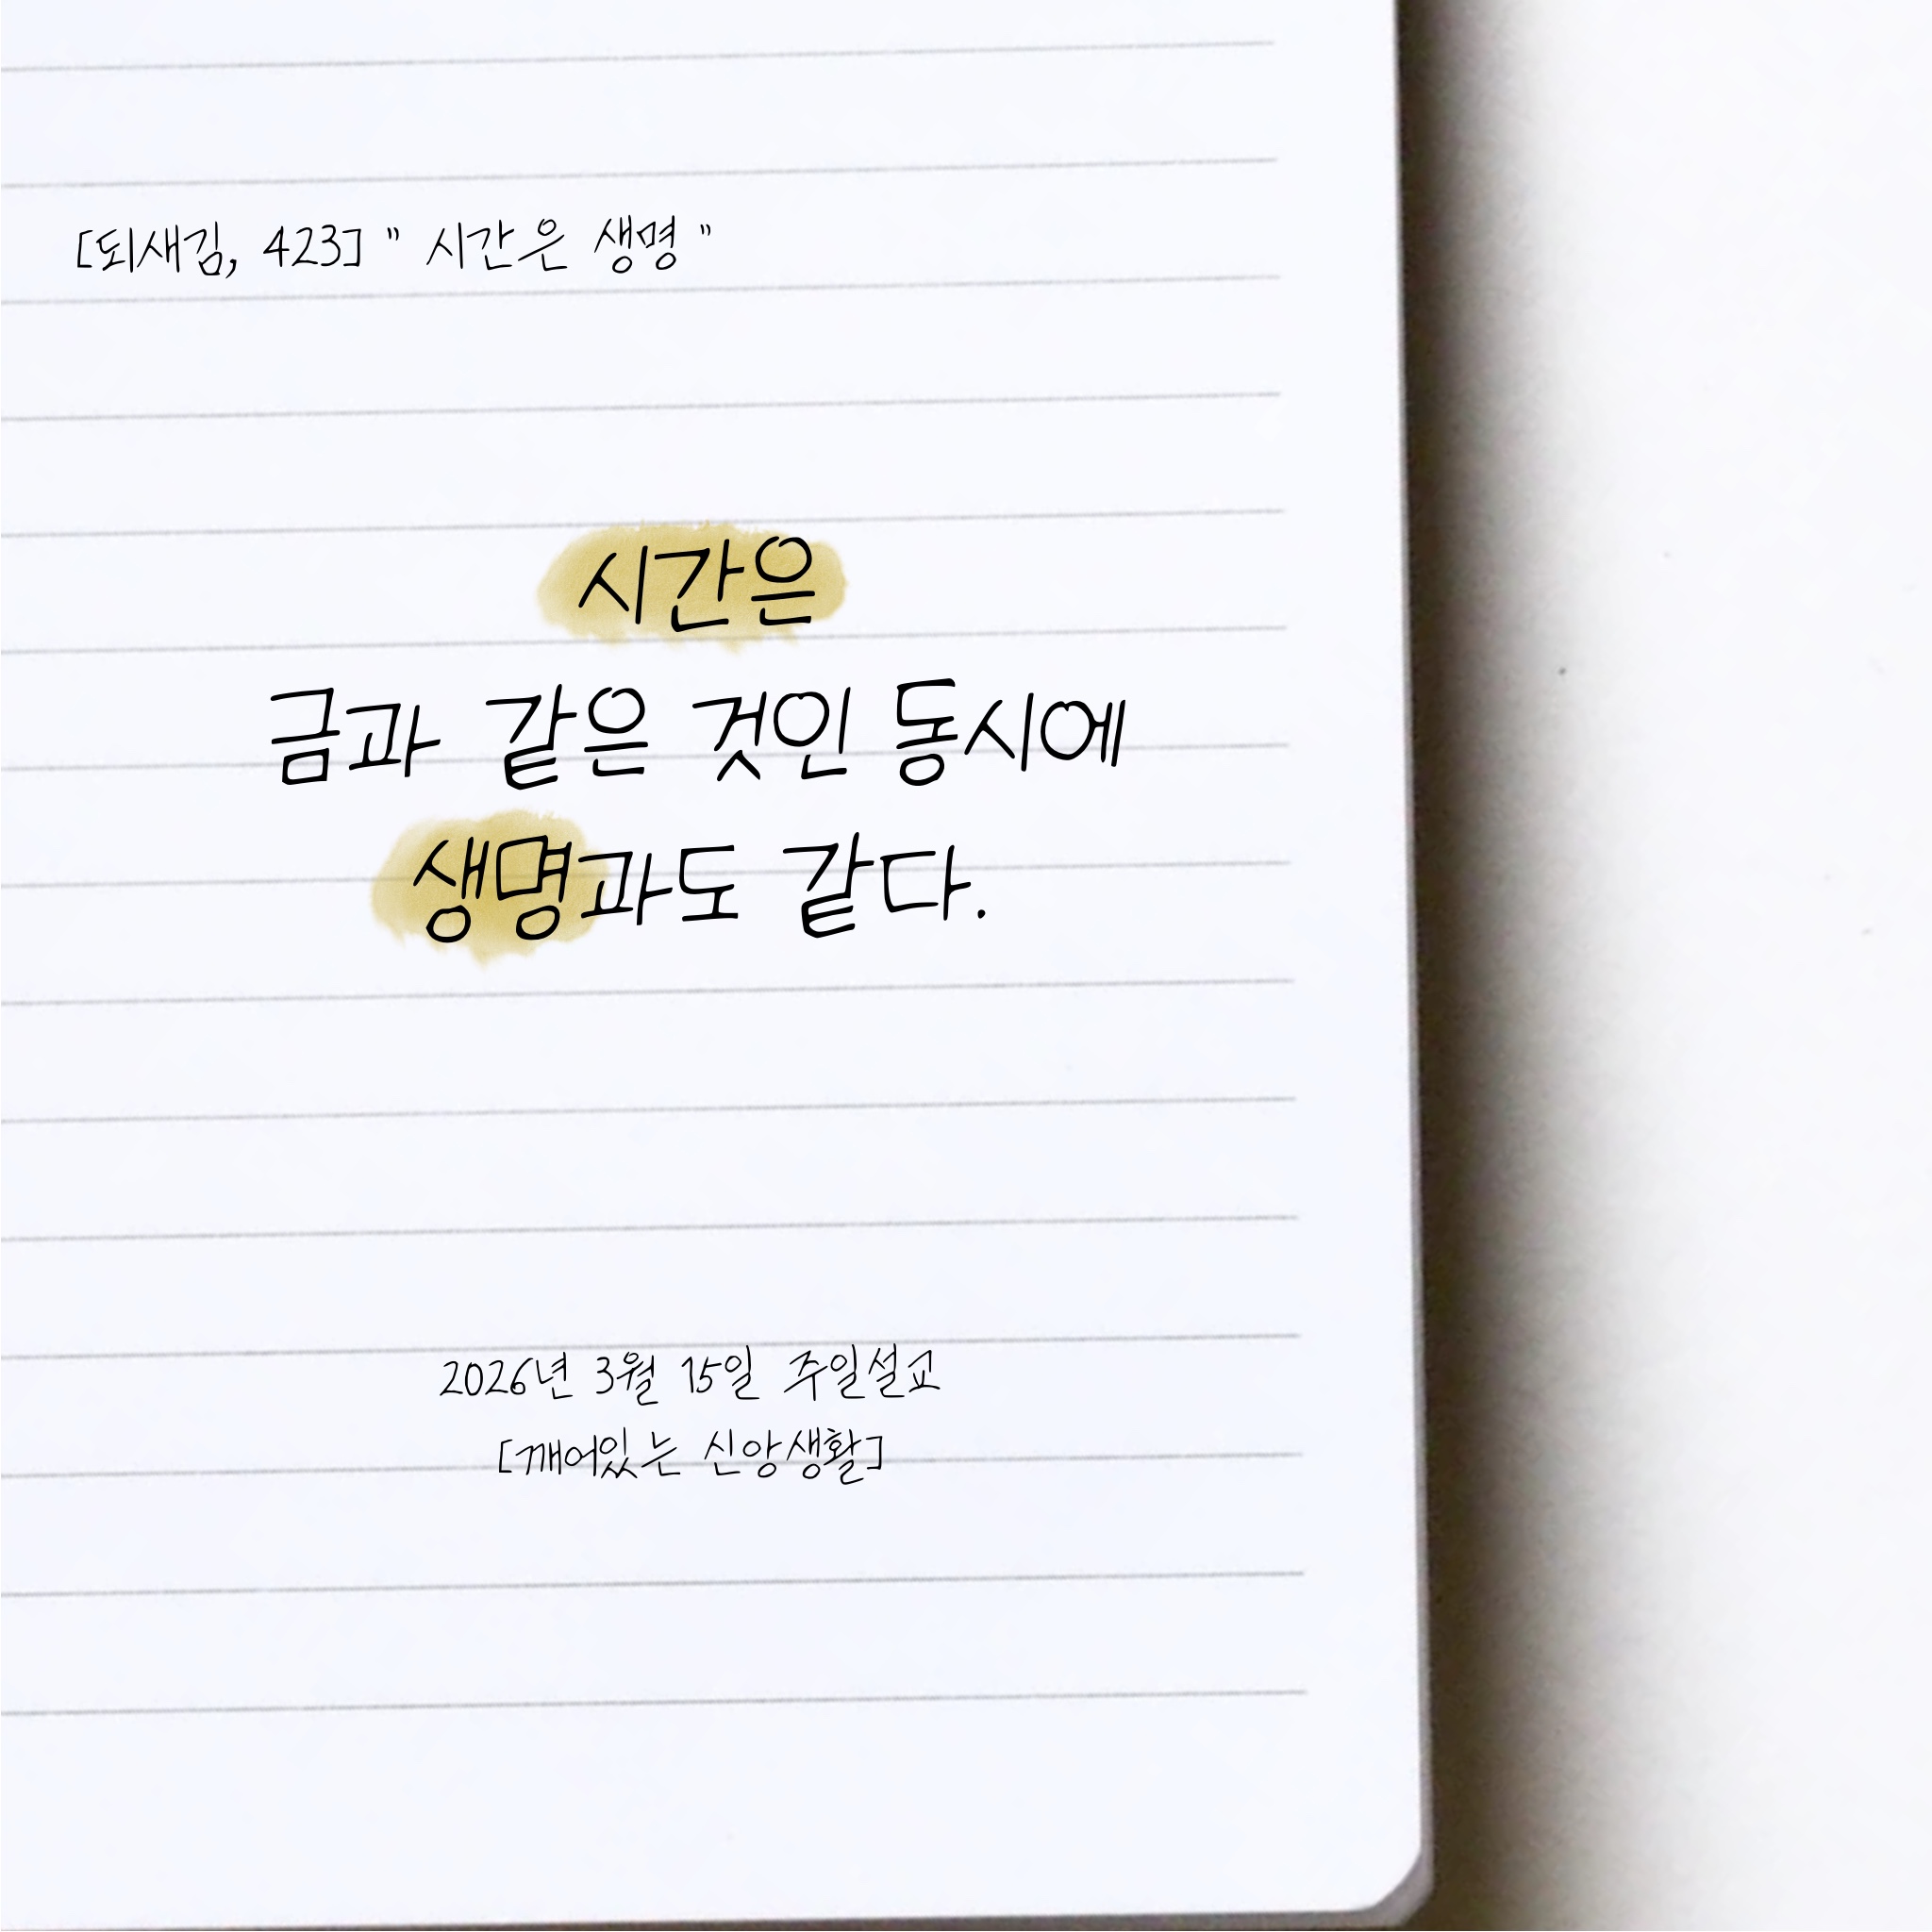 [되새김, 423] " 시간은 생명 "
시간은
금과 같은 것인 동시에
생명과도 같다.
2026년 3월 15일 주일설교
[깨어있는 신앙생활]